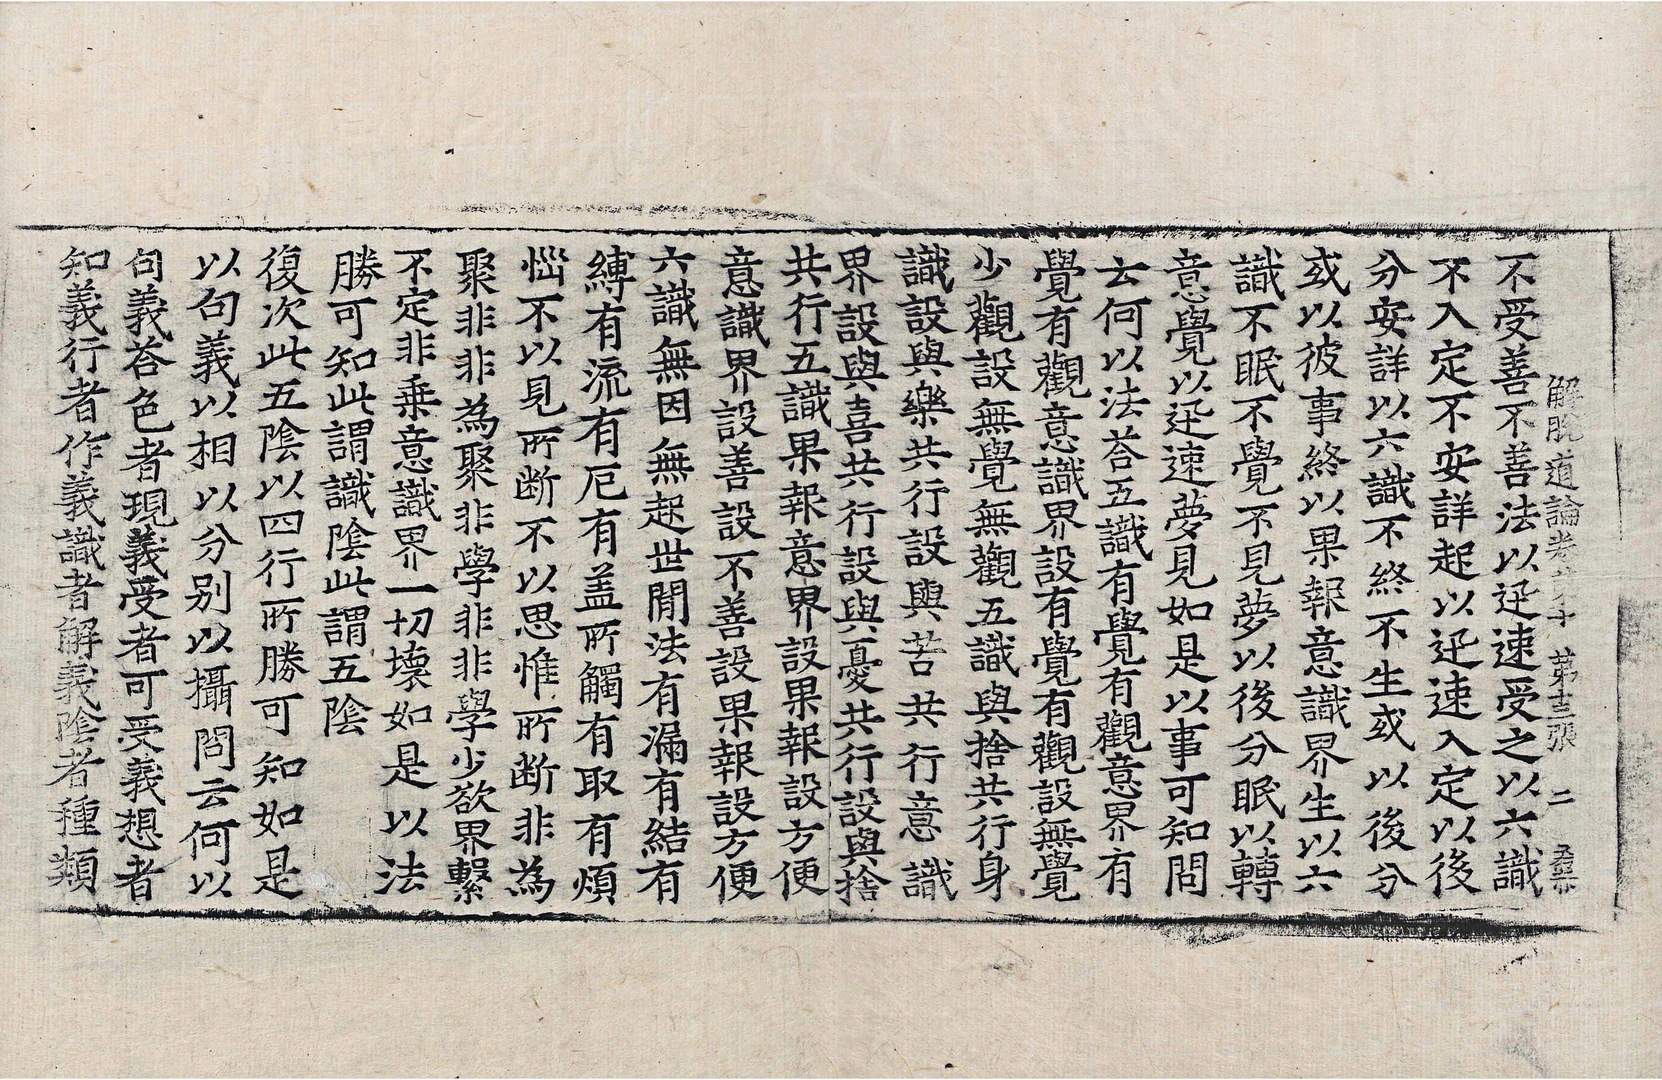 解脫道論卷第十 第十三張 二 桑
不受善不善法以迅速受之以六識
不入定不安詳起以迅速入定以後
分安詳以六識不終不生或以後分
或以彼事終以果報意識界生以六
識不眠不覺不見夢以後分眠以轉
意覺以迅速夢見如是以事可知問
云何以法荅五識有覺有觀意界有
覺有觀意識界設有覺有觀設無覺
少觀設無覺無觀五識與捨共行身
識設與樂共行設與苦共行意識
界設與喜共行設與憂共行設與捨
共行五識果報意界設果報設方便
意識界設善設不善設果報設方便
六識無因無起世間法有漏有結有
縛有流有厄有盖所觸有取有煩
惱不以見所断不以思惟所断非為
聚非非為聚非學非非學少欲界繫
不定非乗意識界一切壞如是以法
勝可知此謂識陰此謂五陰
復次此五陰以四行所勝可知如是
以句義以相以分别以攝問云何以
句義荅色者現義受者可受義想者
知義行者作義識者解義陰者種類